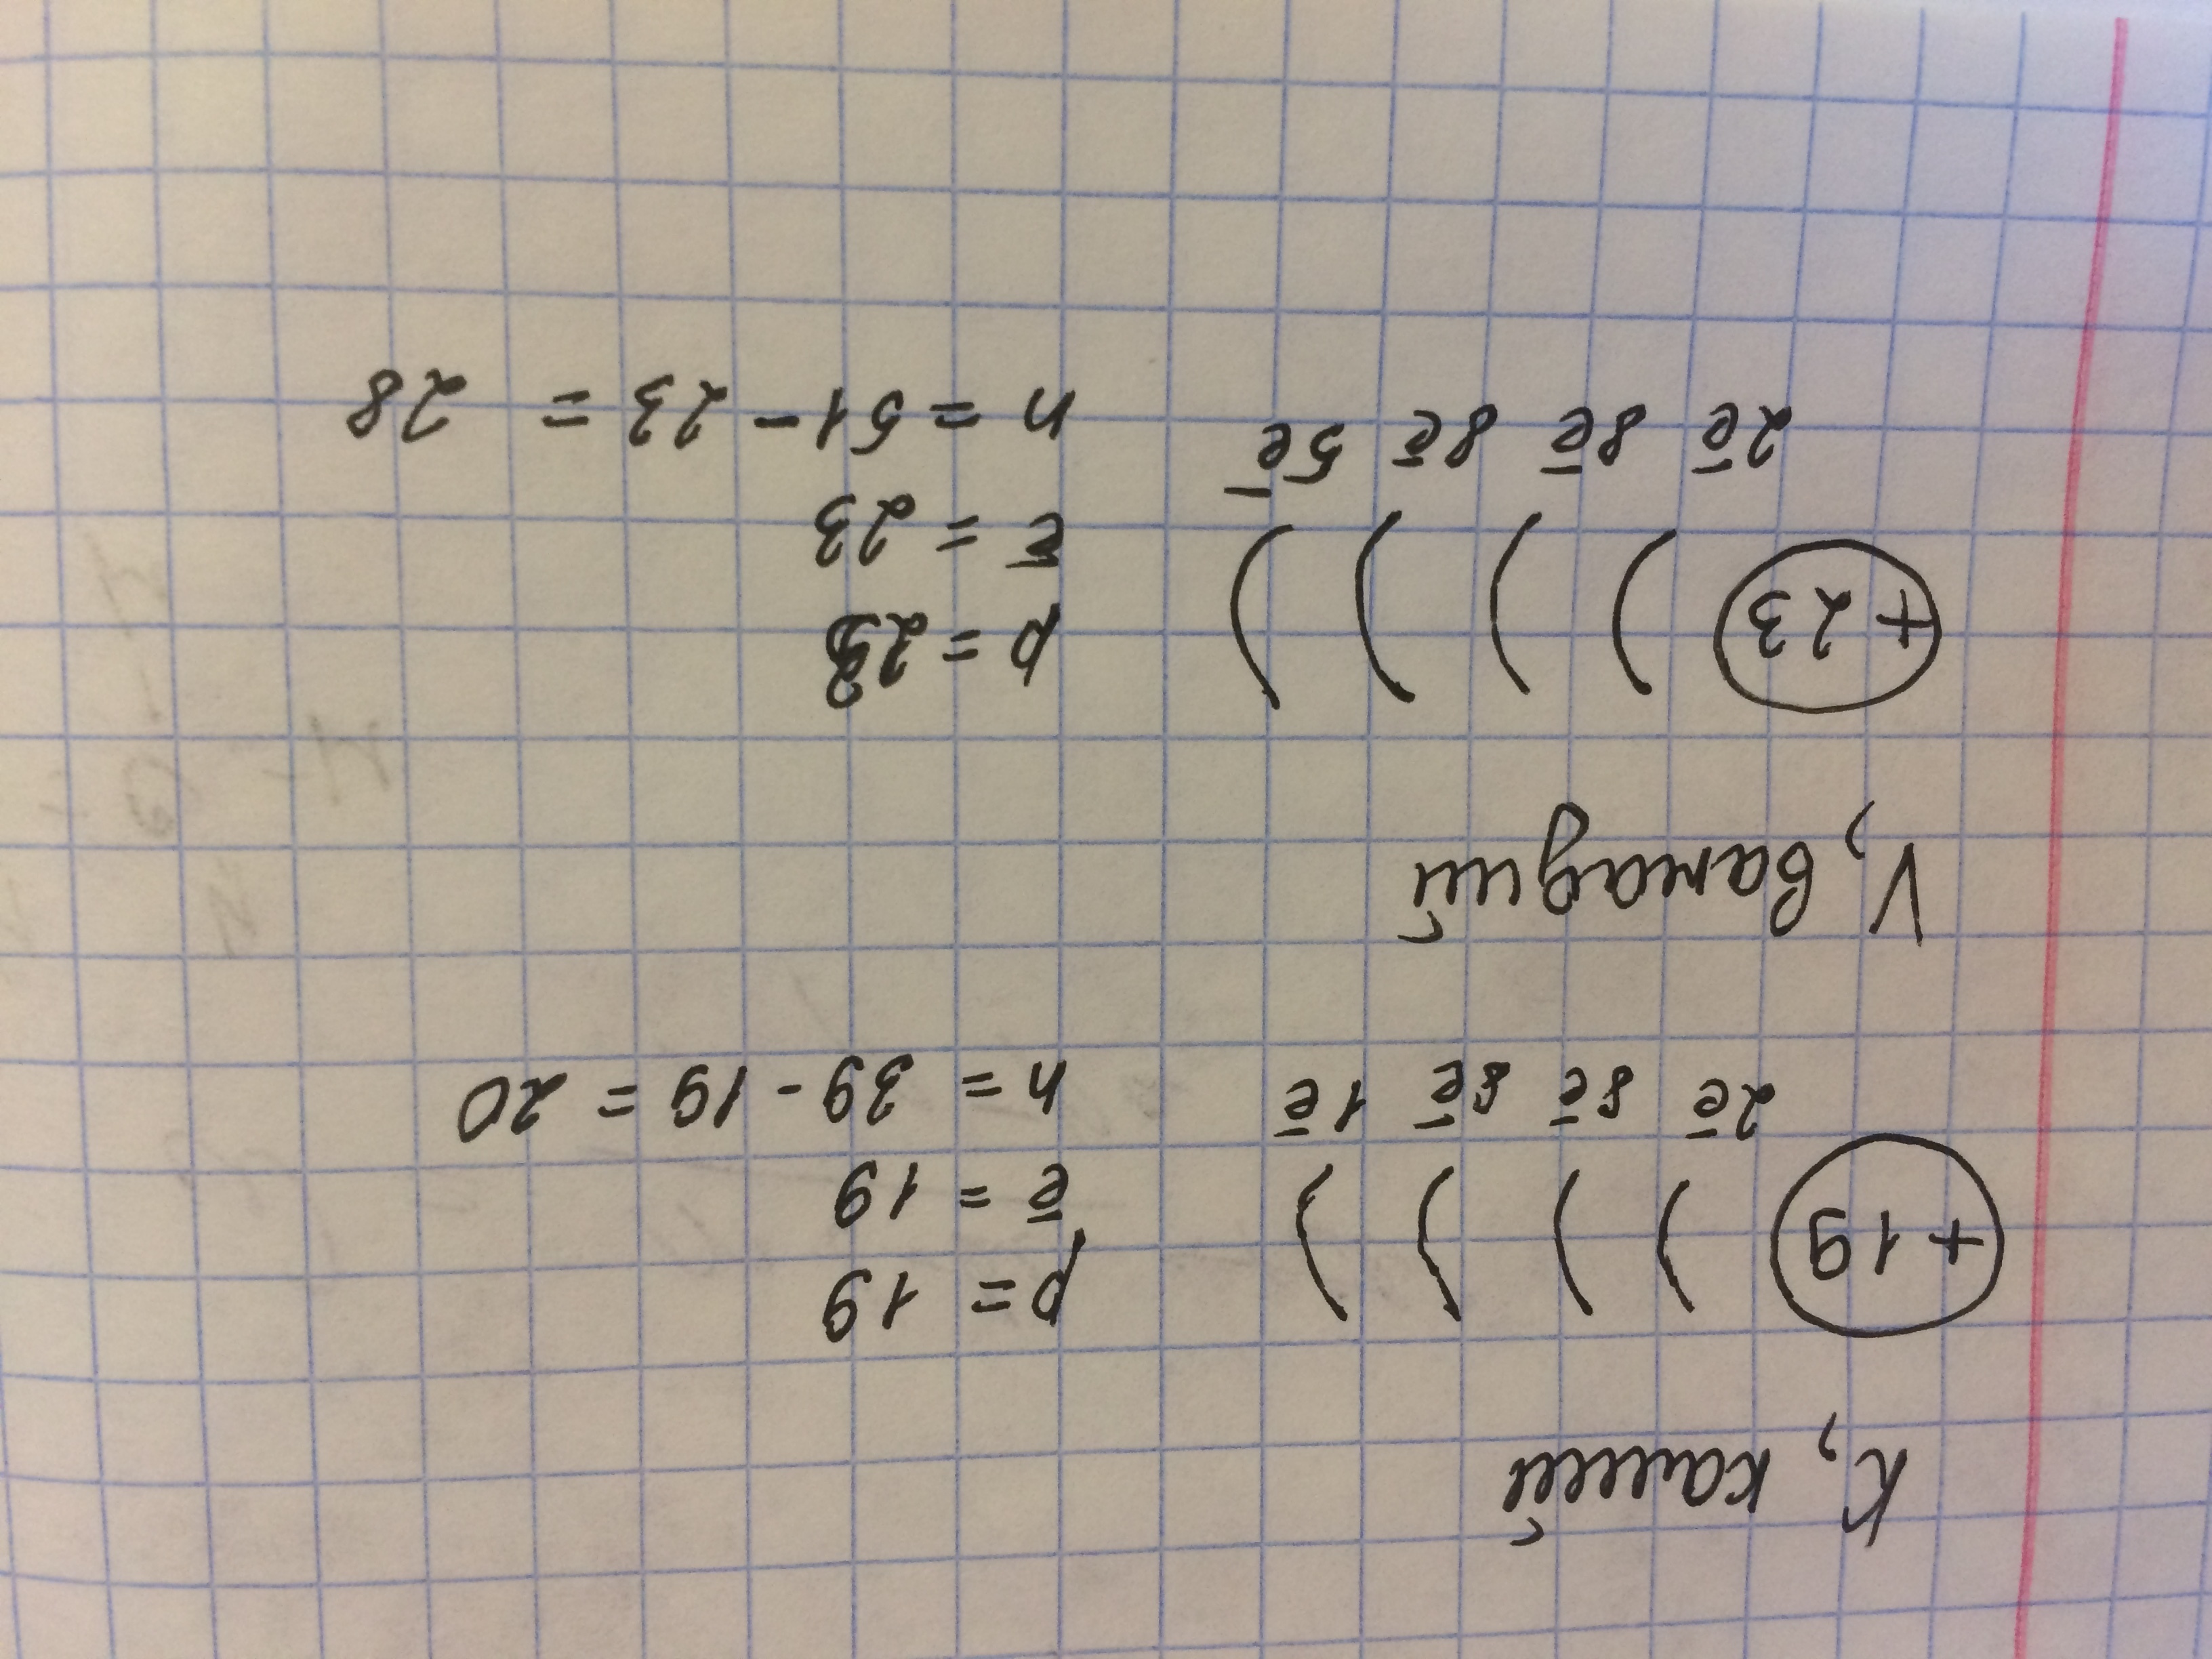 К, калий
+19
2ē 8ē 8ē 1ē
p = 19
ē = 19
n = 39 - 19 = 20
V, ванадий
+23
2ē 8ē 8ē 5ē
p = 23
ē = 23
n = 51 - 23 = 28